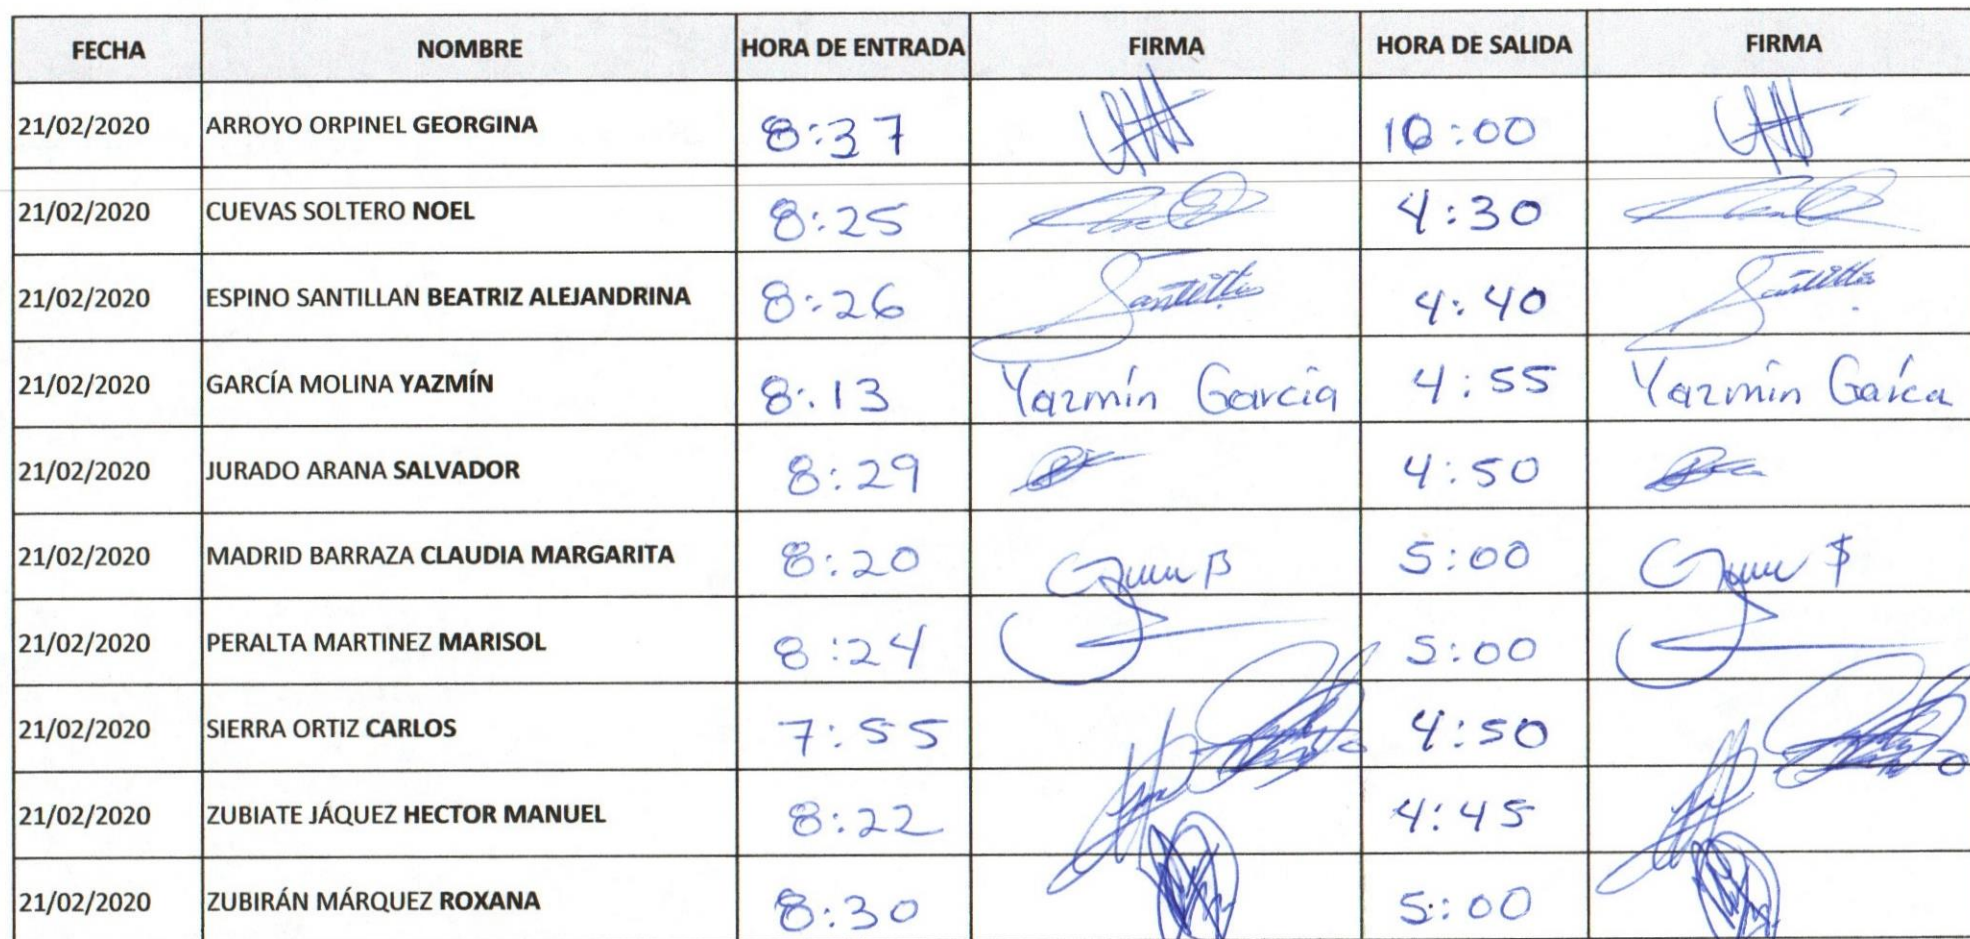 FECHA NOMBRE HORA DE ENTRADA FIRMA HORA DE SALIDA FIRMA
21/02/2020 ARROYO ORPINEL GEORGINA 8:37 10:00
21/02/2020 CUEVAS SOLTERO NOEL 8:25 4:30
21/02/2020 ESPINO SANTILLAN BEATRIZ ALEJANDRINA 8:26 4:40
21/02/2020 GARCÍA MOLINA YAZMÍN 8:13 Yazmín García 4:55 Yazmín Garca
21/02/2020 JURADO ARANA SALVADOR 8:29 4:50
21/02/2020 MADRID BARRAZA CLAUDIA MARGARITA 8:20 5:00
21/02/2020 PERALTA MARTINEZ MARISOL 8:24 5:00
21/02/2020 SIERRA ORTIZ CARLOS 7:55 4:50
21/02/2020 ZUBIATE JÁQUEZ HECTOR MANUEL 8:22 4:45
21/02/2020 ZUBIRÁN MÁRQUEZ ROXANA 8:30 5:00